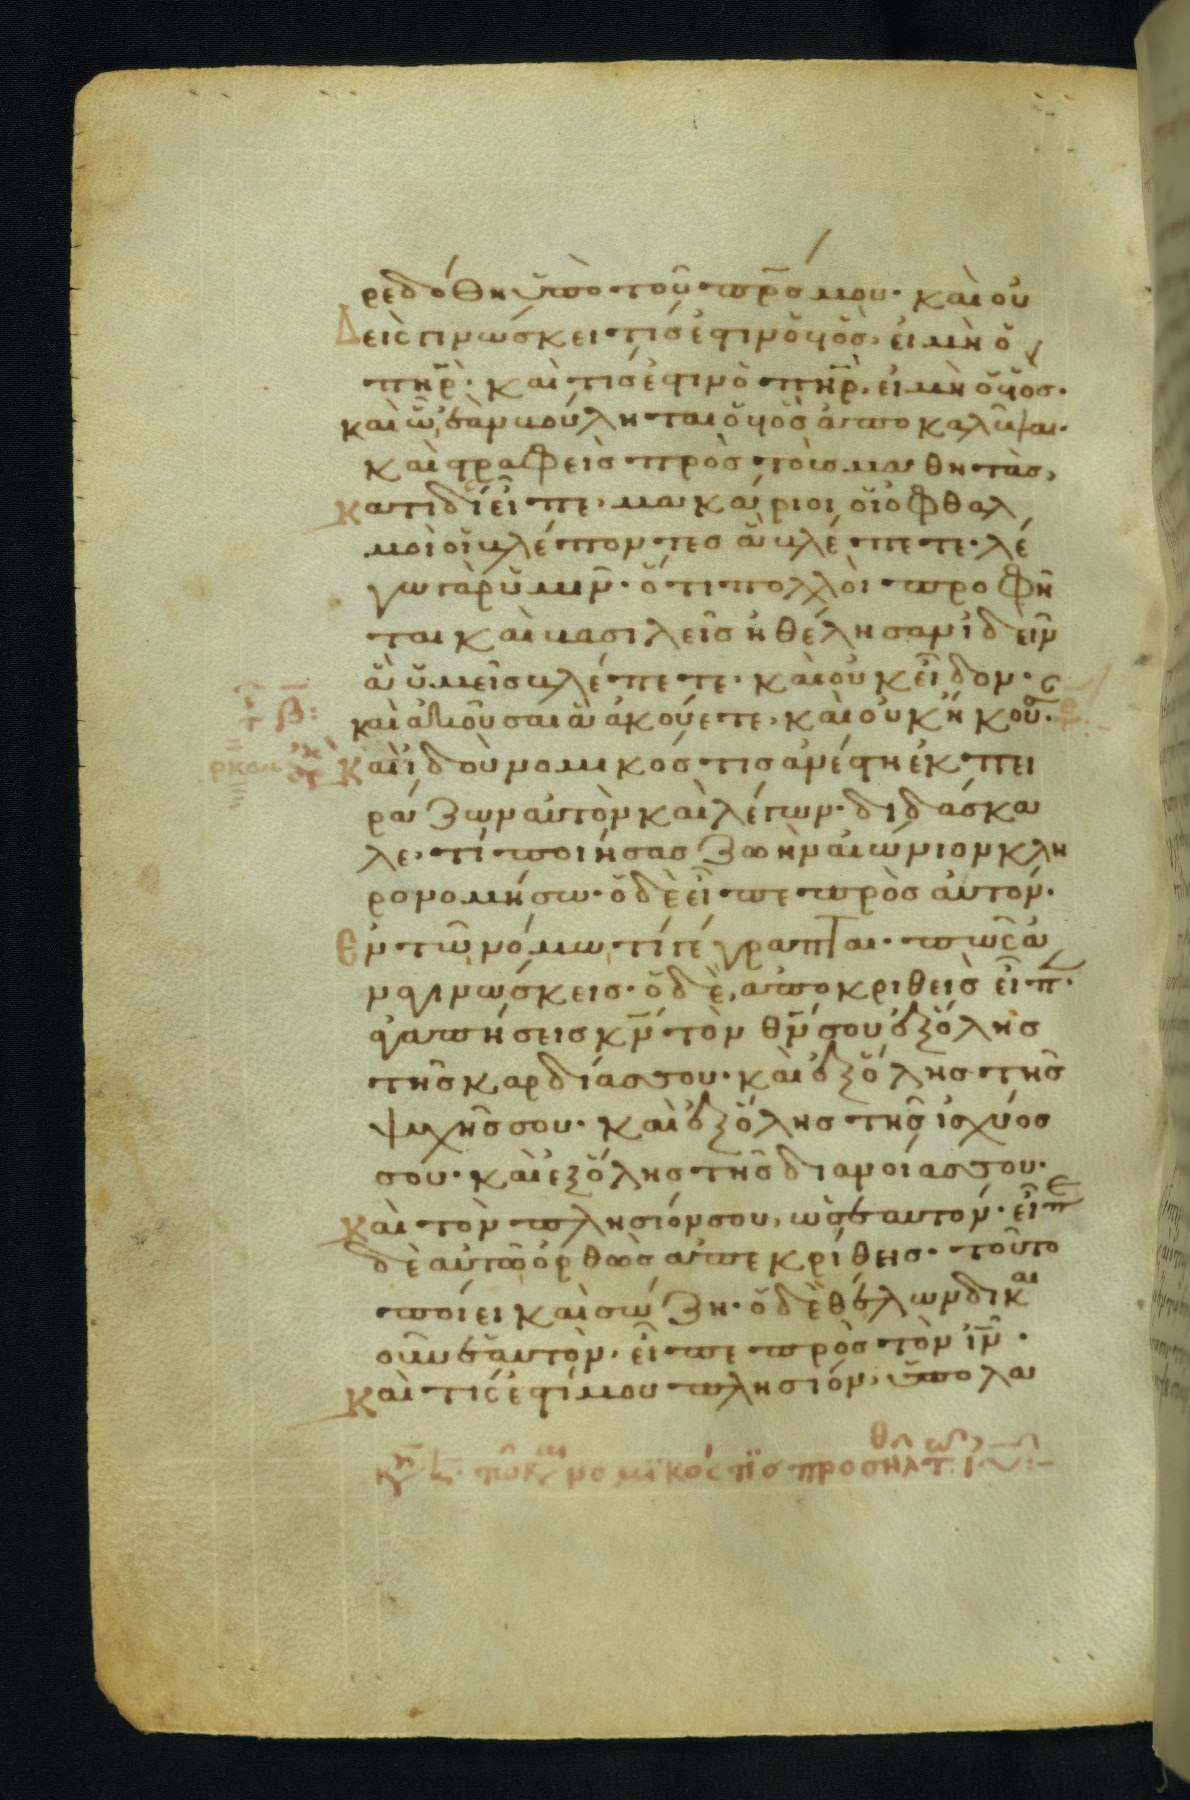 ρεδόθη ὑπὸ τοῦ πρ̅σ μου· καὶ οὐ
δεὶς γινώσκει τίς ἐστιν ὁ υ̅ὸσ, εἰ μὴ ὁ
πη̅ρ· καὶ τίς ἐστιν ὁ πη̅ρ, εἰ μὴ ὁ υ̅ὸσ·
καὶ ᾧ ἐὰν βούληται ὁ υ̅ὸσ ἀποκαλύψαι·
καὶ στραφεὶς πρὸς τοὺς μαθητὰς,
κατιδίαν εἶπε, μακάριοι οἱ ὀφθαλ
μοὶ οἱ βλέποντες ἃ βλέπετε· λέ
γω γὰρ ὑμῖν· ὅτι πολλοὶ προφῆ
ται καὶ βασιλεῖς ἠθέλησαν ἰδεῖν
ἃ ὑμεῖς βλέπετε· καὶ οὐκ εἶδον·
καὶ ἀκοῦσαι ἃ ἀκούετε, καὶ οὐκ ἤκουσ·
τ β:
Καὶ ἰδοὺ νομικός τις ἀνέστη ἐκπει
ράζων αὐτὸν καὶ λέγων· διδάσκα
λε· τί ποιήσας ζωὴν αἰώνιον κλη
ρονομήσω· ὁ δὲ εἶπε πρὸς αὐτόν·
Ἐν τῷ νόμῳ τί γέγραπται· πῶς ἀ
ναγινώσκεις· ὁ δὲ, ἀποκριθεὶς εἶπ·
ἀγαπήσεις κ̅ν τὸν θ̅ν σου ἐξ ὅλης
τῆς καρδίας σου· καὶ ἐξ ὅλης τῆς
ψυχῆς σου· καὶ ἐξ ὅλης τῆς ἰσχύος
σου· καὶ ἐξ ὅλης τῆς διανοίας σου·
καὶ τὸν πλησίον σου, ὡς ἑαυτόν· εἶπε
δὲ αὐτῷ ὀρθῶς ἀπεκρίθης· τοῦτο
ποίει καὶ σώζη· ὁ δὲ θέλων δικαι
οῦν ἑαυτὸν, εἶπε πρὸς τὸν ι̅ν·
Καὶ τίς ἐστί μου πλησίον, ὑπολα
νομικός τις προσῆλθ τ